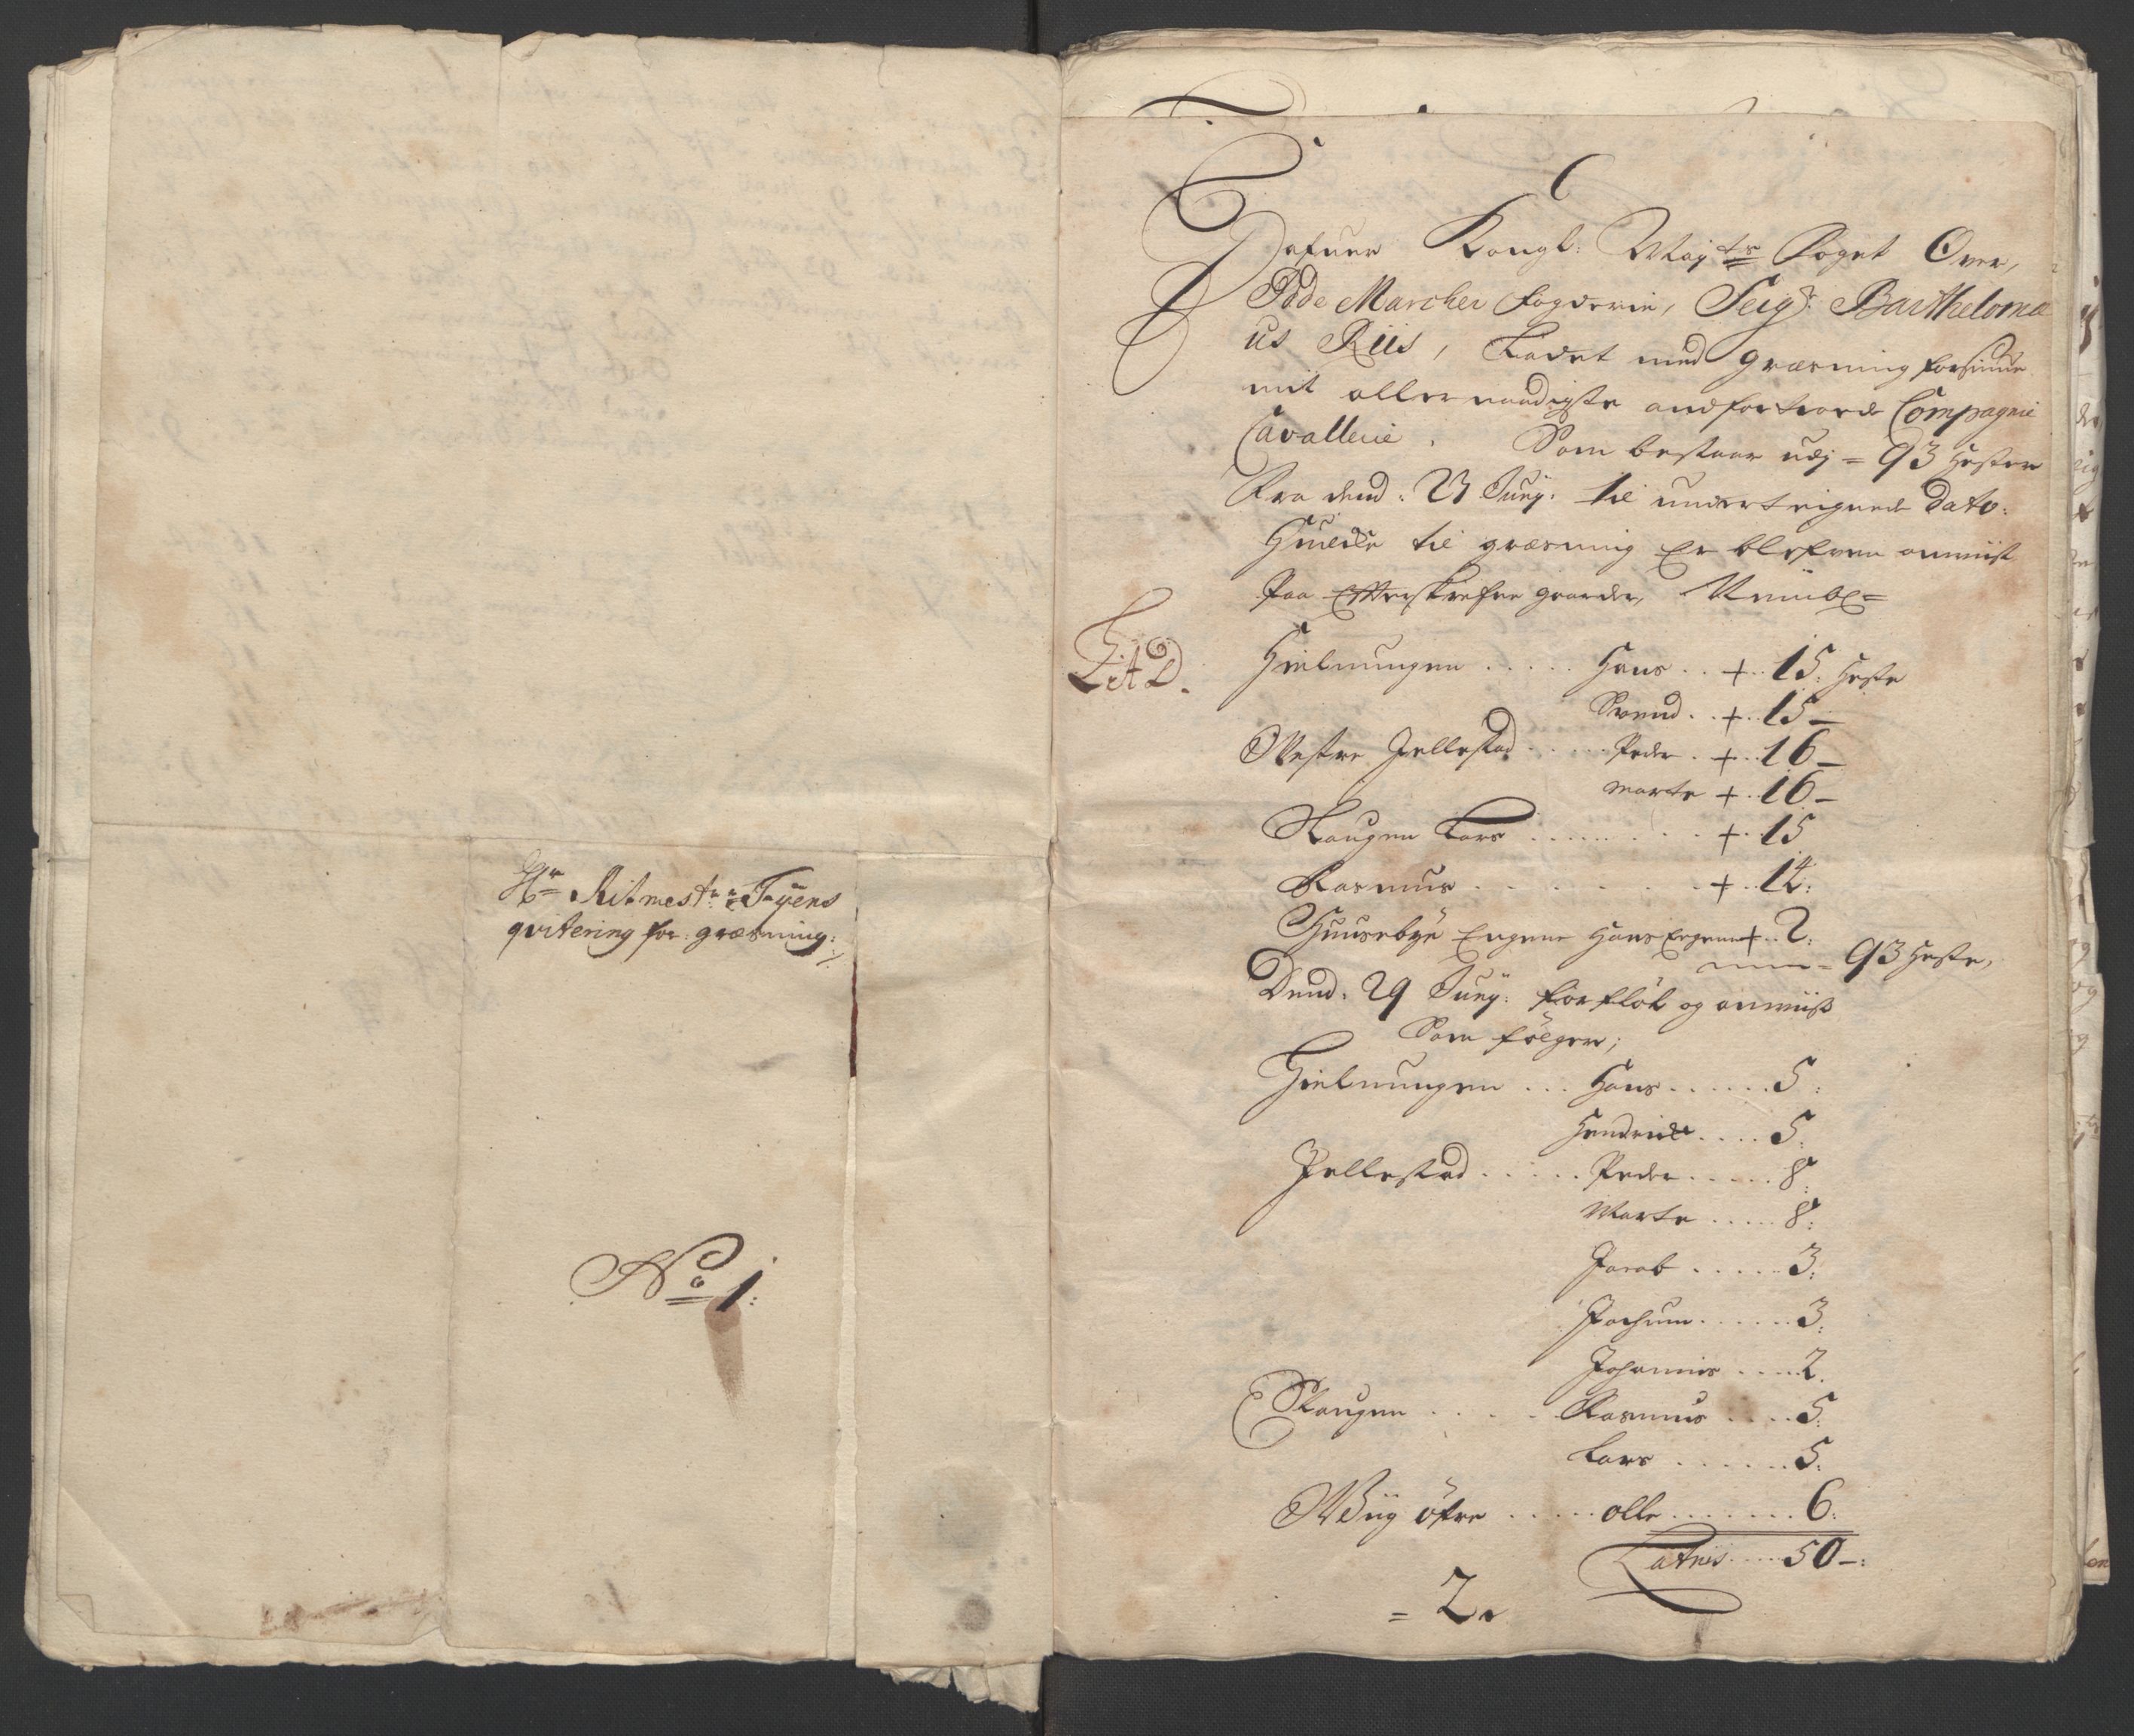 Hr Ritmestr: Tyens
qvitering for græsning:
No 1:
Hafuer Kongl: Mayts Foget Over
Rode Marcher fogderie, Seigr: Bartholomæ
us Riis, Ladet med græsning forsiune
mit allernaadigste anfortroede Compagnie
Cavallerie. Som bestaar udj = 93 Hester
Fra dend: 23 Junij: til underteignede Dato:
Huilcke til græsning Er blefven anviist
Paa Efterskrefne gaarder, Nemblig=
Lit A D.
Hielmungen ..... Hans .. + .. 15: Heste
Svend .. + .. 15 –
Westre Jellestad ..... Peder . + .. 16 –
Marte + .. 16 –
Skaugen Lars ........ + .. 15
Rasmus ....... + .. 14:
Huusebye Engene Hans Engene + .. 2:
93 Heste,
Dend: 29 Junij: forfløt og anviist
Som følger;
Hielmungen ... Hans ...... 5:
Hendrick .... 5:
Jellestad ..... Peder ..... 8:
Marte ..... 8:
Jacob ..... 3:
Jochum ...... 3:
Johannis ..... 2.
Skaugen .... Rasmus .... 5:
Lars ...... 5:
Wiig øfre ..... olle ....... 6:
Latris ..... 50 –:
= 2.